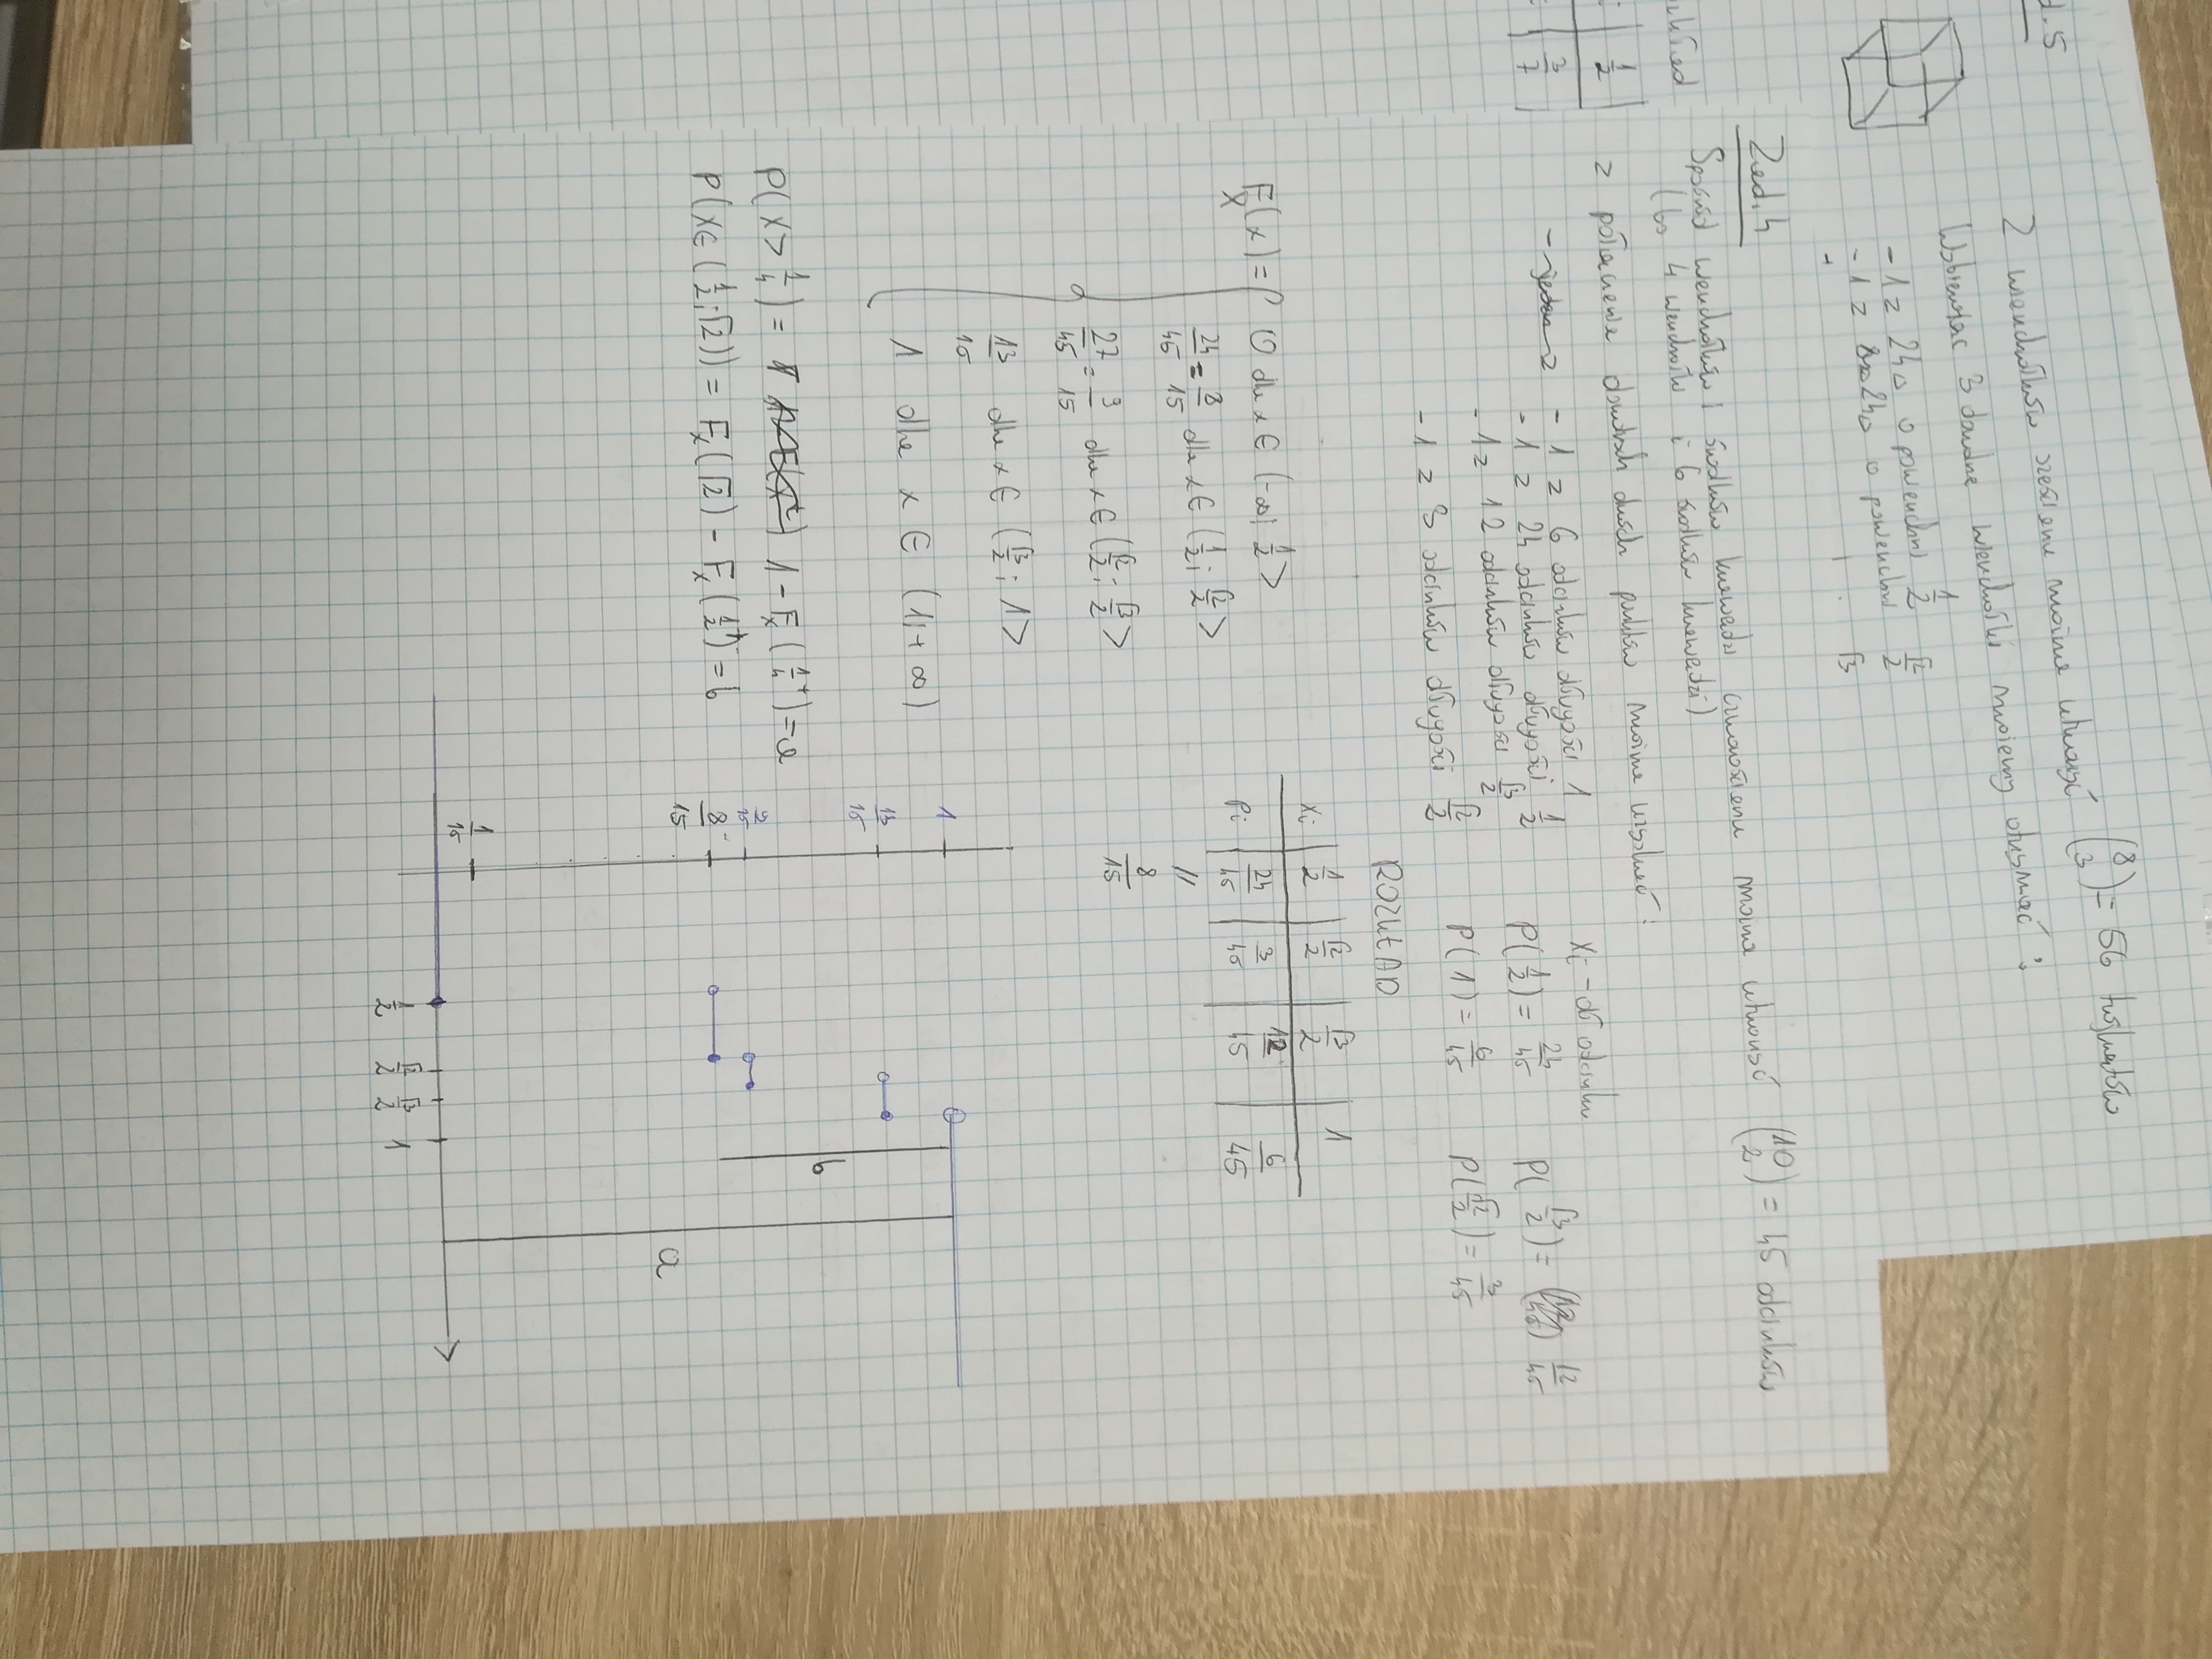 d. 5
Z wierzchołków sześcianu można utworzyć (8 3) = 56 trójkątów
Wybierając 3 dowolne wierzchołki możemy otrzymać :
- 1 z 24 △ o powierzchni 1/2 √2/2
- 1 z 24 △ o powierzchni
√3
Zad. 4
Spośród wierzchołków i środków krawędzi czworościanu można utworzyć (10 2) = 45 odcinków
(bo 4 wierzchołki i 6 środków krawędzi)
z połączenia dowolnych dwóch punktów można uzyskać :
- 1 z 6 odcinków długości 1
- 1 z 24 odcinków długości 1/2
- 1 z 12 odcinków długości √3/2
- 1 z 3 odcinków długości √2/2
Xi - dł odcinku
P(1/2) = 24/45 P(√3/2) = 12/45
P(1) = 6/45 P(√2/2) = 3/45
ROZKŁAD
xi | 1/2 | √2/2 | √3/2 | 1
pi | 24/45 | 3/45 | 12/45 | 6/45
||
8/15
Fx(x) = { 0 dla x ∈ (-∞; 1/2>
24/45 = 8/15 dla x ∈ (1/2; √2/2>
27/45 = 9/15 dla x ∈ (√2/2; √3/2>
13/15 dla x ∈ (√3/2; 1>
1 dla x ∈ (1; +∞)
P(X > 1/4) = 1 - Fx(1/4+) = a
P(X ∈ (1/2; √2)) = Fx(√2) - Fx(1/2+) = b
1
13/15
9/15
8/15
1/15
1/2 √2/2 √3/2 1
b
a
1/2
3/7